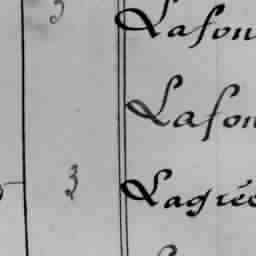 Lafon
Lafon
3 Lagrée